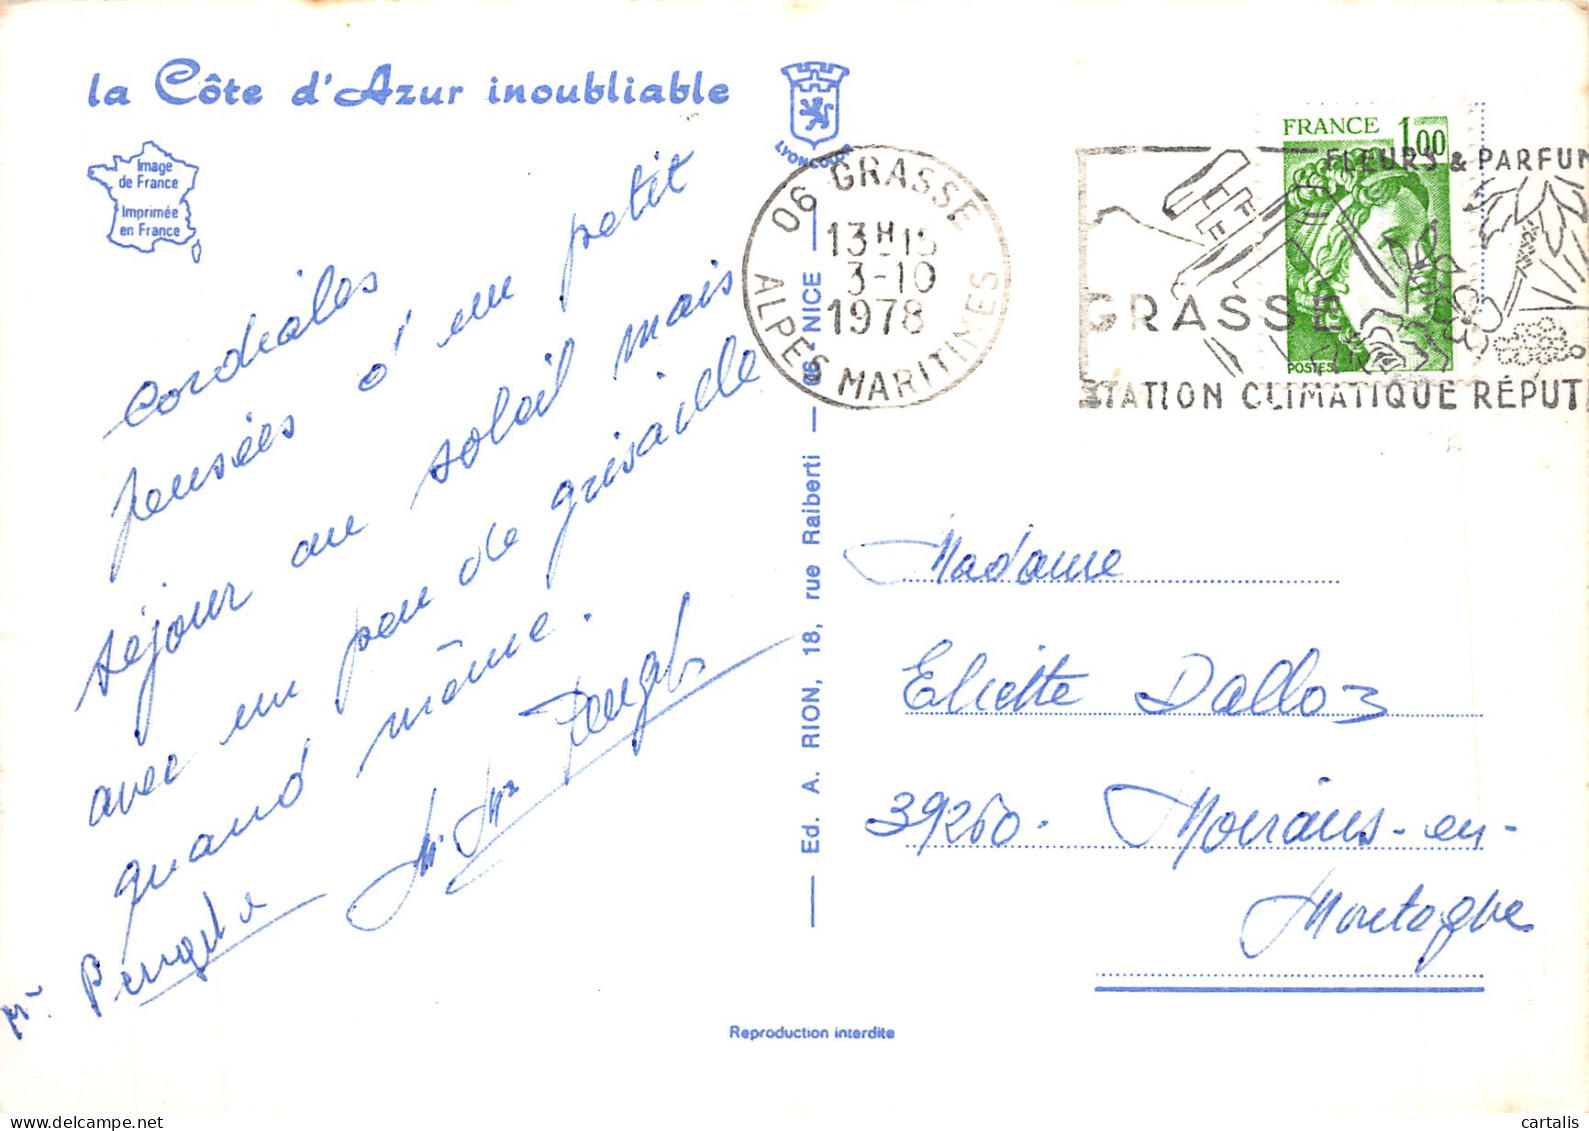 la Côte d'Azur inoubliable
Image
de France
Imprimée
en France
LYONCOLOR
cordiales
pensées d'un petit
séjour au soleil mais
avec un peu de grisaille
quand même.
Ed. A. RION, 18, rue Raiberti — 06 - NICE
06 GRASSE
13H15
3-10
1978
ALPES MARITIMES
FRANCE 1,00
POSTES
FLEURS & PARFUM
GRASSE
STATION CLIMATIQUE RÉPUT
Madame
Eliette Dalloz
39260. Moirans-en-
Montagne
Reproduction interdite
cartalis